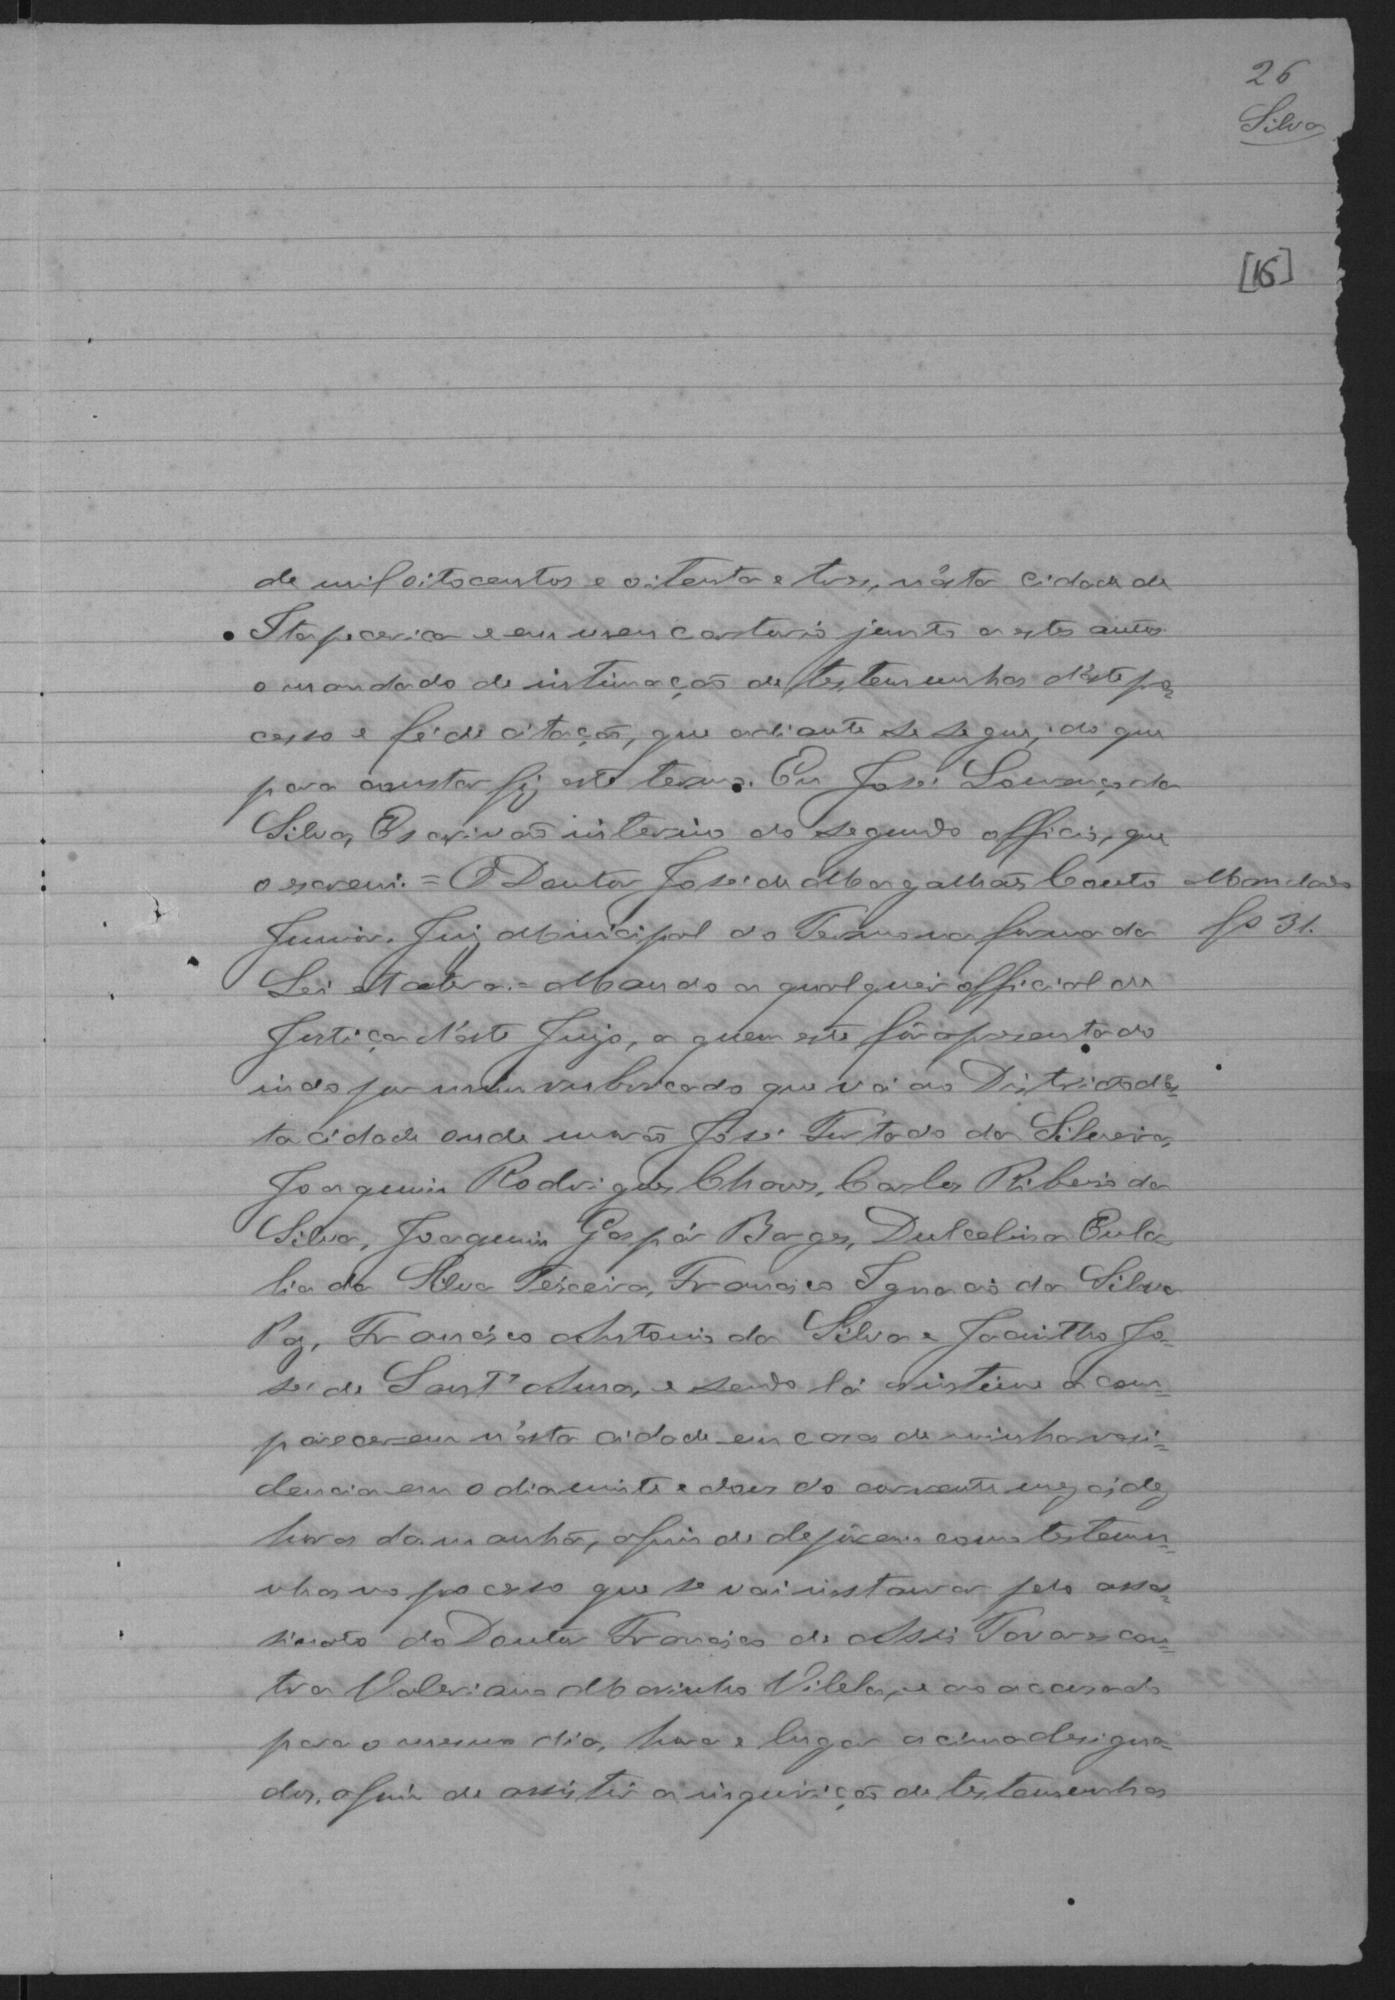 26
Silva
[15]
de mil oitocentos e oitenta e tres, n'ésta cidade de
Itapecerica e em meu cartorio junto a estes autos
o mandado de intimação de testemunhas d'este pro-
cesso e fé de citação, que adiante se segue, do que
para constar fiz este termo. Eu José Lourenço da
Silva, Escrivão interino do segundo officio, que
o escrevi. = O Doutor José de Magalhães Couto
Mandado
Junior. Juiz Municipal do Termo na forma da
fs 31.
Lei et cetera. = Mando a qualquer official de
Justiça d'este Juizo, a quem este fôr apresentado
indo por mim rubricado que vá ao Districto d'es-
ta cidade onde morão José Furtado da Silveira,
Joaquim Rodrigues Chaves, Carlos Ribeiro da
Silva, Joaquim Gaspár Borges, Dulcelina Eula-
lia da Silva Teixeira, Francisco Ignacio da Silva
Paz, Francisco Antonio da Silva e Jacintho Jo-
sé de Sant'Anna, e sendo lá os intime a com-
parecerem n'ésta cidade em casa de minha resi-
dencia em o dia vinte e dois do corrente mez ás dez
horas da manhã, afim de depôrem como testemu-
nhas no processo que se vai instaurar pelo assas-
sinato do Doutor Francisco de Assis Tavares con-
tra Valeriano Marinho Vilela, e ao accusado
para o mesmo dia, hora e lugar acima designa-
dos, afim de assistir a inquirição de testemunhas